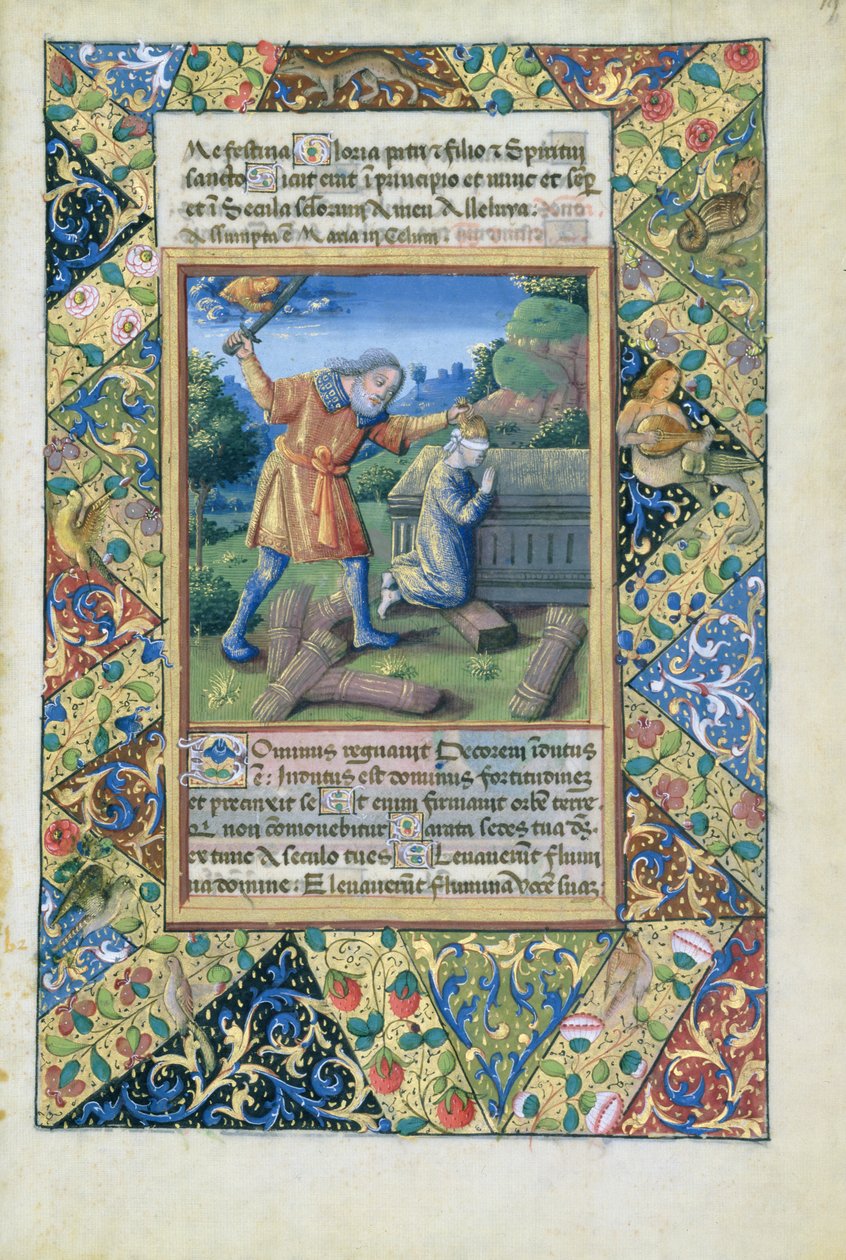 Me festina Gloria patri ⁊ filio ⁊ Spiritui
sancto Sicut erat ī principio et nunc et semp̱
et ī Secula sclorum Amen Alleluya.
Assumpta ē Maria in Celum.
Dominus regnavit Decorem īdutus
ē: Indutus est dominus fortitudinem
et precinxit se Et enim firmavit orbē terre
non cōmovebitur Parata sedes tua
ex tunc A seculo tu es Elevaverūt flumi
na domine: Elevaverūt flumina vocē suaꝫ
b2